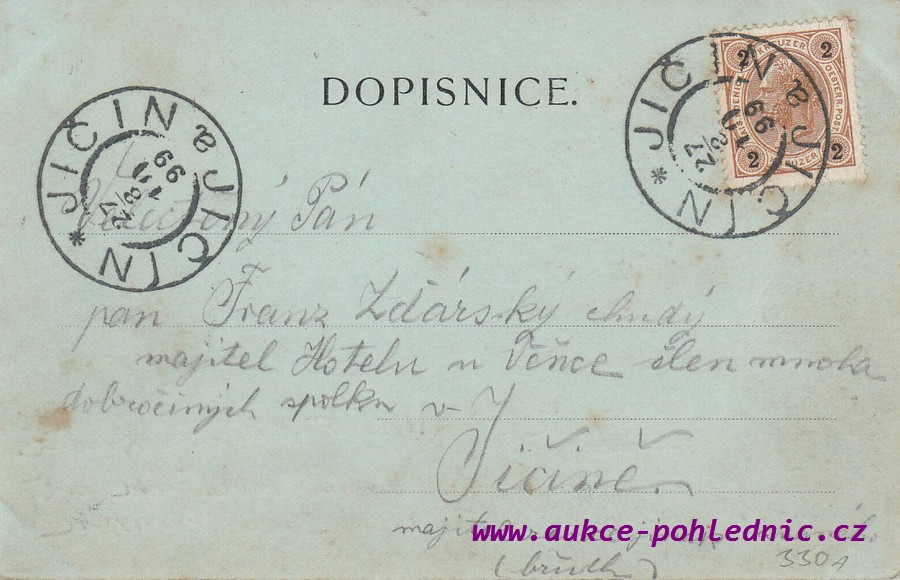 DOPISNICE.
JIČIN JIČIN
27/8 99
JIČIN JIČIN
27/8 99
2 KREUZER 2
OESTERR. POST
2 KREUZER 2
Pán
pan Franz Zďárský chudý
majitel Hotelu u Věnce člen mnoha
dobročiných spolku v
Jičíně
www.aukce-pohlednic.cz
330A